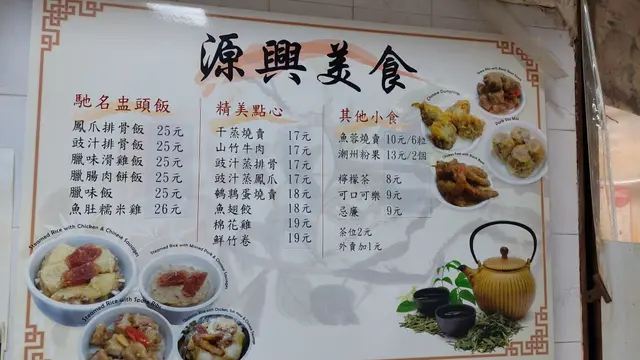 源興美食
馳名盅頭飯
鳳爪排骨飯 25元
豉汁排骨飯 25元
臘味滑雞飯 25元
臘腸肉餅飯 25元
臘味飯 25元
魚肚糯米雞 26元
精美點心
干蒸燒賣 17元
山竹牛肉 17元
豉汁蒸排骨 17元
豉汁蒸鳳爪 17元
鵪鶉蛋燒賣 18元
魚翅餃 18元
棉花雞 19元
鮮竹卷 19元
其他小食
魚蓉燒賣 10元/6粒
潮州粉果 13元/2個
檸檬茶 8元
可口可樂 9元
忌廉 9元
茶位2元
外賣加1元
Steamed Rice with Chicken & Chinese Sausages
Steamed Rice with Minced Pork & Chinese Sausages
Steamed Rice with Spare Ribs
Chinese Dumplings